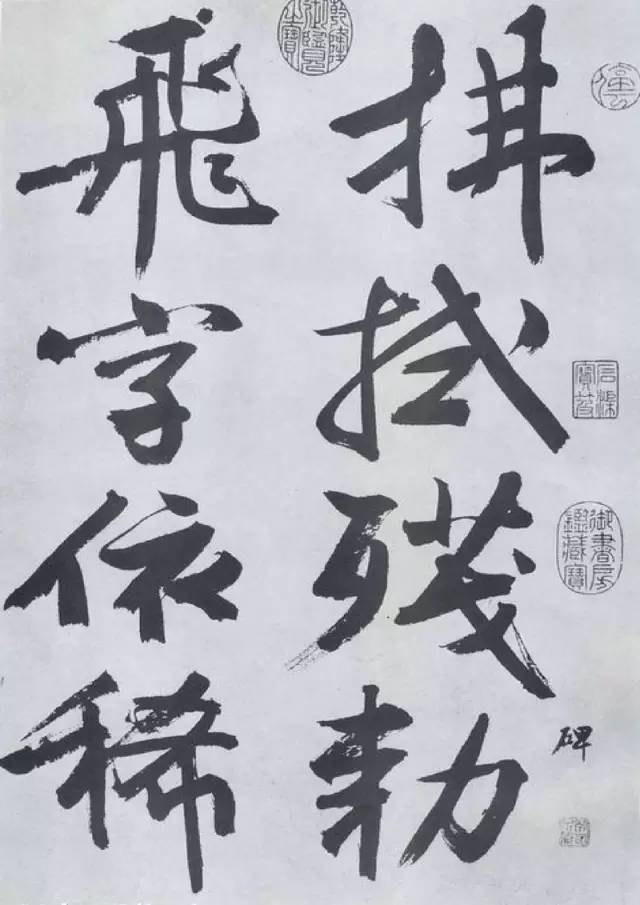 拂拭殘勅
碑
飛字依稀
乾隆御覽之寶
石渠寶笈
御書房鑑藏寶